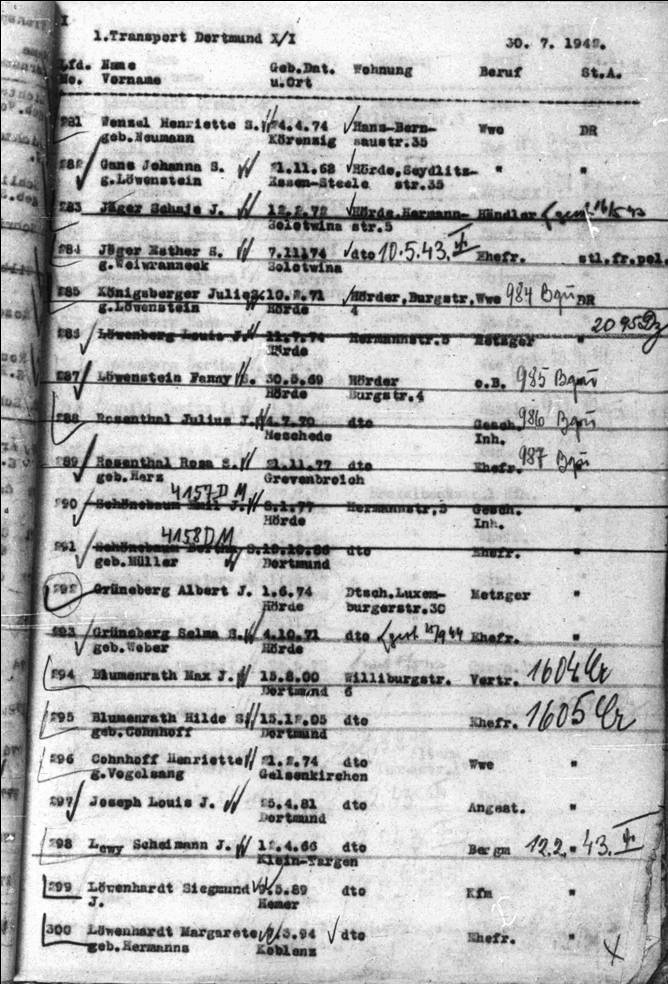 I
1.Transport Dortmund X/I
30. 7. 1942.
Lfd. Name Geb.Dat. Wohnung Beruf St.A.
No. Vorname u.Ort
281 Wenzel Henriette S. 24.4.74 Hans-Bern- Wwe DR
geb.Neumann Körenzig saustr.35
282 Gans Johanna S. 21.11.68 Hörde,Seydlitz- " "
g.Löwenstein Essen-Steele str.35
283 Jäger Schaje J. 12.2.72 Hörde,Hermann- Händler
Solotwina str.5
284 Jäger Esther S. 7.1174 dto 10.5.43. Ehefr. stl.fr.pol.
g.Weiwranneck Solotwina
285 Königsberger Julie S. 10.2.71 Hörder,Burgstr, Wwe 984 DR
g.Löwenstein Hörde 4
286 Löwenberg Louis J. 11.7.74 Hermannstr.5 Metzger " 2095
Hörde
287 Löwenstein Fanny S. 30.5.69 Hörder o.B. 985
Hörde Burgstr.4
288 Rosenthal Julius J. 4.7.70 dto Gesch. 986 "
Meschede Inh.
289 Rosenthal Rosa S. 21.11.77 dto Ehefr. 987 "
geb.Herz Grevenbroich
4157 DM
290 Schönebaum Emil J. 8.1.77 Hermannstr.5 Gesch. "
Hörde Inh.
4158 DM
291 Schönebaum Bertha S. Ehefr. "
geb.Müller Dortmund
292 Grüneberg Albert J. 1.6.74 Dtsch.Luxem- Metzger "
Hörde burgerstr.30
293 Grüneberg Selma S. 4.10.71 dto gest Ehefr. "
geb.Weber Hörde
294 Blumenrath Max J. 15.8.00 Williburgstr. Vertr. 1604
Dortmund 6
295 Blumenrath Hilde S. 15.12.05 dto Ehefr. 1605
geb.Cohnhoff Dortmund
296 Cohnhoff Henriette 21.2.74 dto Wwe "
g.Vogelsang Gelsenkirchen
297 Joseph Louis J. 25.4.81 dto Angest. "
Dortmund
298 Lewy Scheimann J. 12.4.66 dto Bergm 12.2. " 43.
Klein-Targen
299 Löwenhardt Siegmund .5.89 dto Kfm "
J. Hemer
300 Löwenhardt Margarete .3.94 dto Ehefr. "
geb.Hermanns Koblenz
X